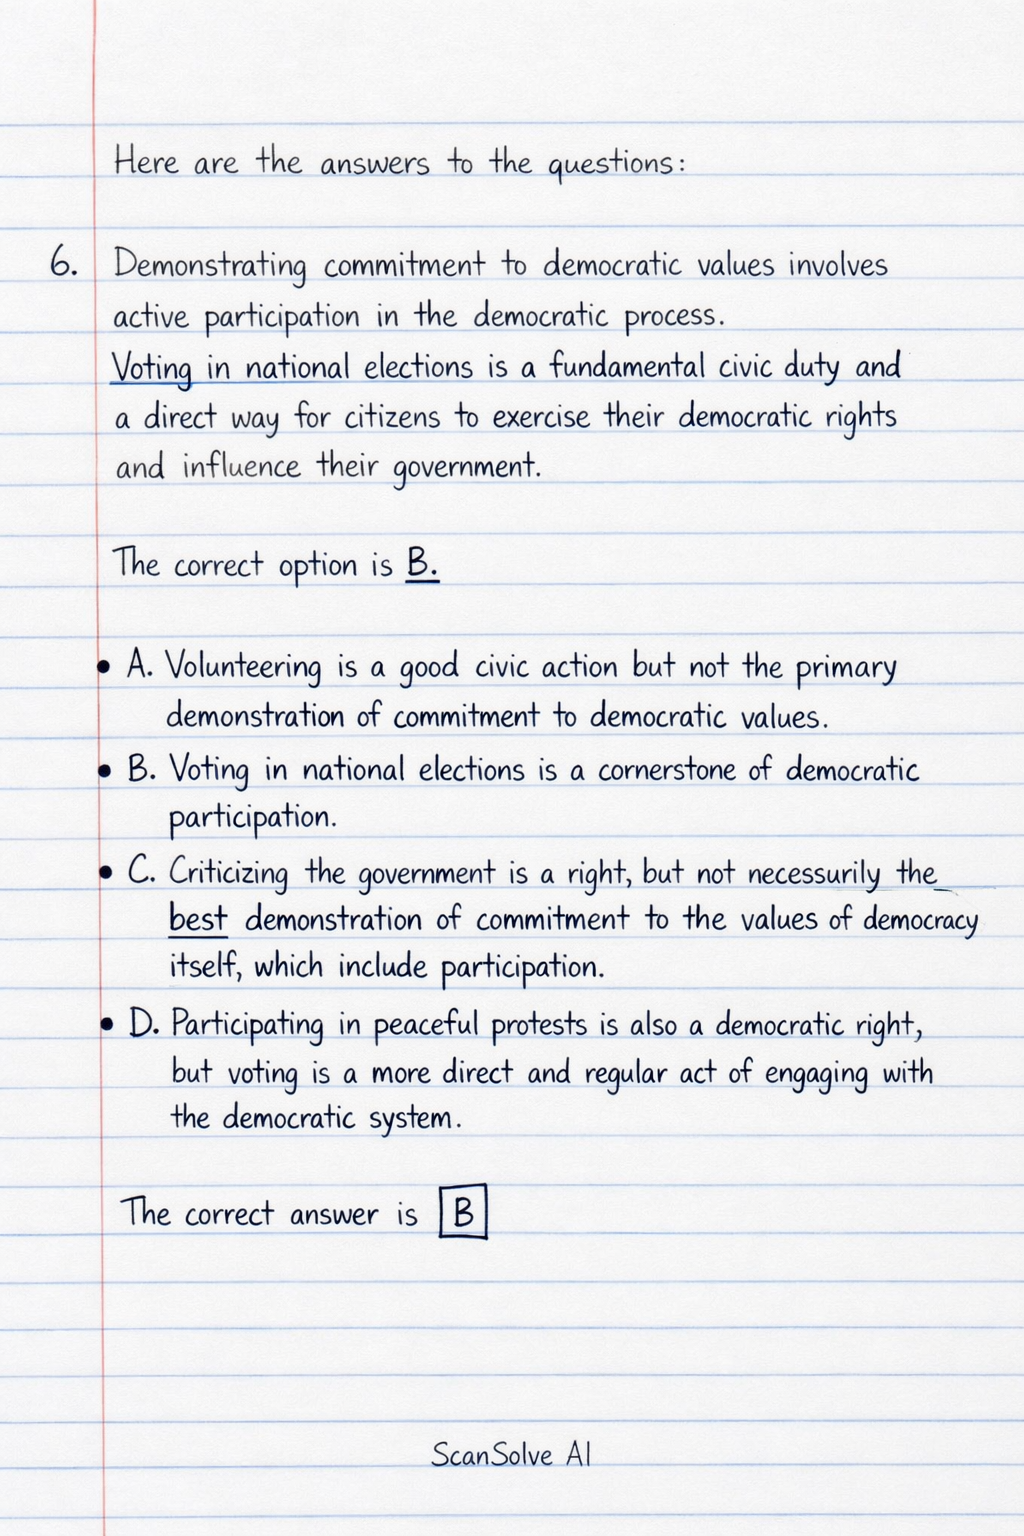 Here are the answers to the questions:
6. Demonstrating commitment to democratic values involves
active participation in the democratic process.
Voting in national elections is a fundamental civic duty and
a direct way for citizens to exercise their democratic rights
and influence their government.
The correct option is B.
• A. Volunteering is a good civic action but not the primary
demonstration of commitment to democratic values.
• B. Voting in national elections is a cornerstone of democratic
participation.
• C. Criticizing the government is a right, but not necessurily the
best demonstration of commitment to the values of democracy
itself, which include participation.
• D. Participating in peaceful protests is also a democratic right,
but voting is a more direct and regular act of engaging with
the democratic system.
The correct answer is B
ScanSolve AI